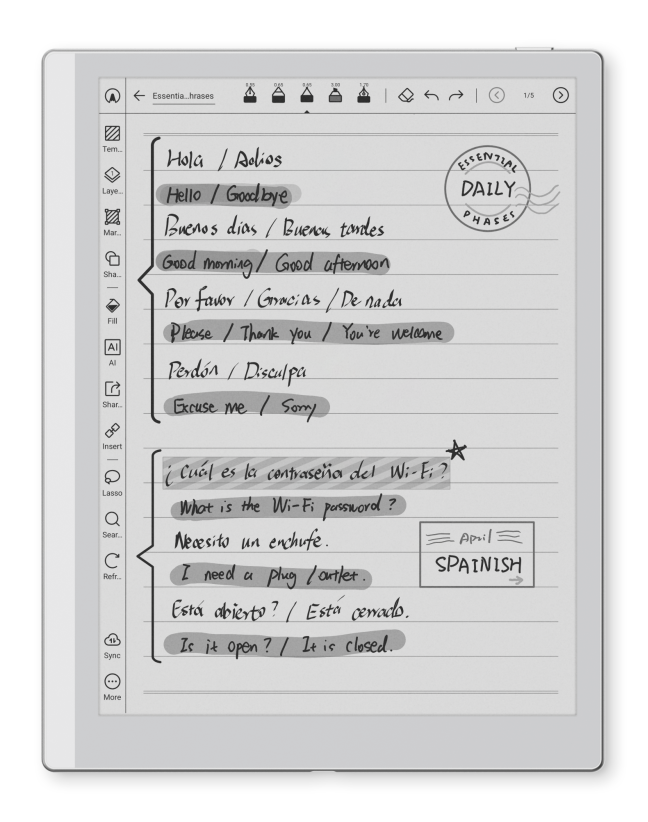 Essentia...hrases
0.35
0.65
0.65
3.00
1.70
1/5
Tem...
Laye...
Mar...
Sha...
Fill
AI
AI
Shar...
Insert
Lasso
Sear...
Refr...
Sync
More
Hola / Adios
Hello / Goodbye
Buenos dias / Buenas tardes
Good morning / Good afternoon
Por favor / Gracias / De nada
Please / Thank you / You're welcome
Perdón / Disculpa
Excuse me / Sorry
ESSENTIAL
DAILY
PHASES
¿Cuál es la contraseña del Wi-Fi?
What is the Wi-Fi password?
Necesito un enchufe.
I need a plug / outlet.
Está abierto? / Está cerrado.
Is it open? / It is closed.
April
SPAINISH